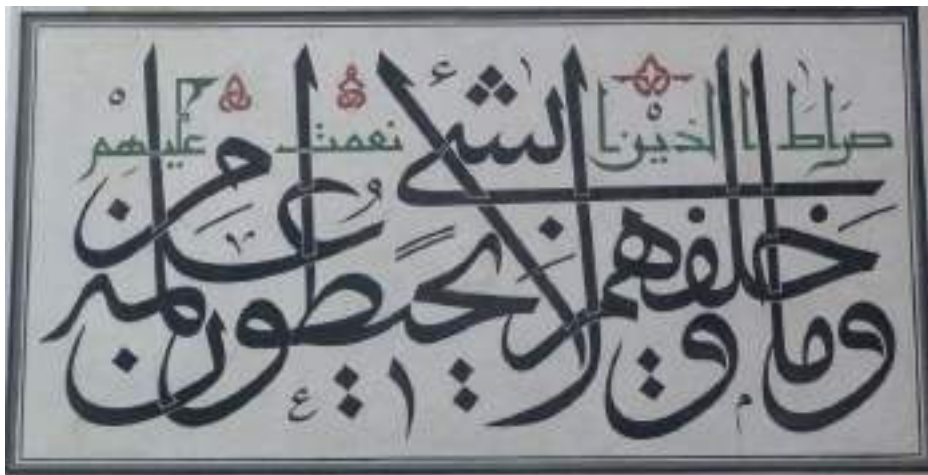 صراط الذين انعمت عليهم
وما خلفهم ولا يحيطون بشئ من علمه